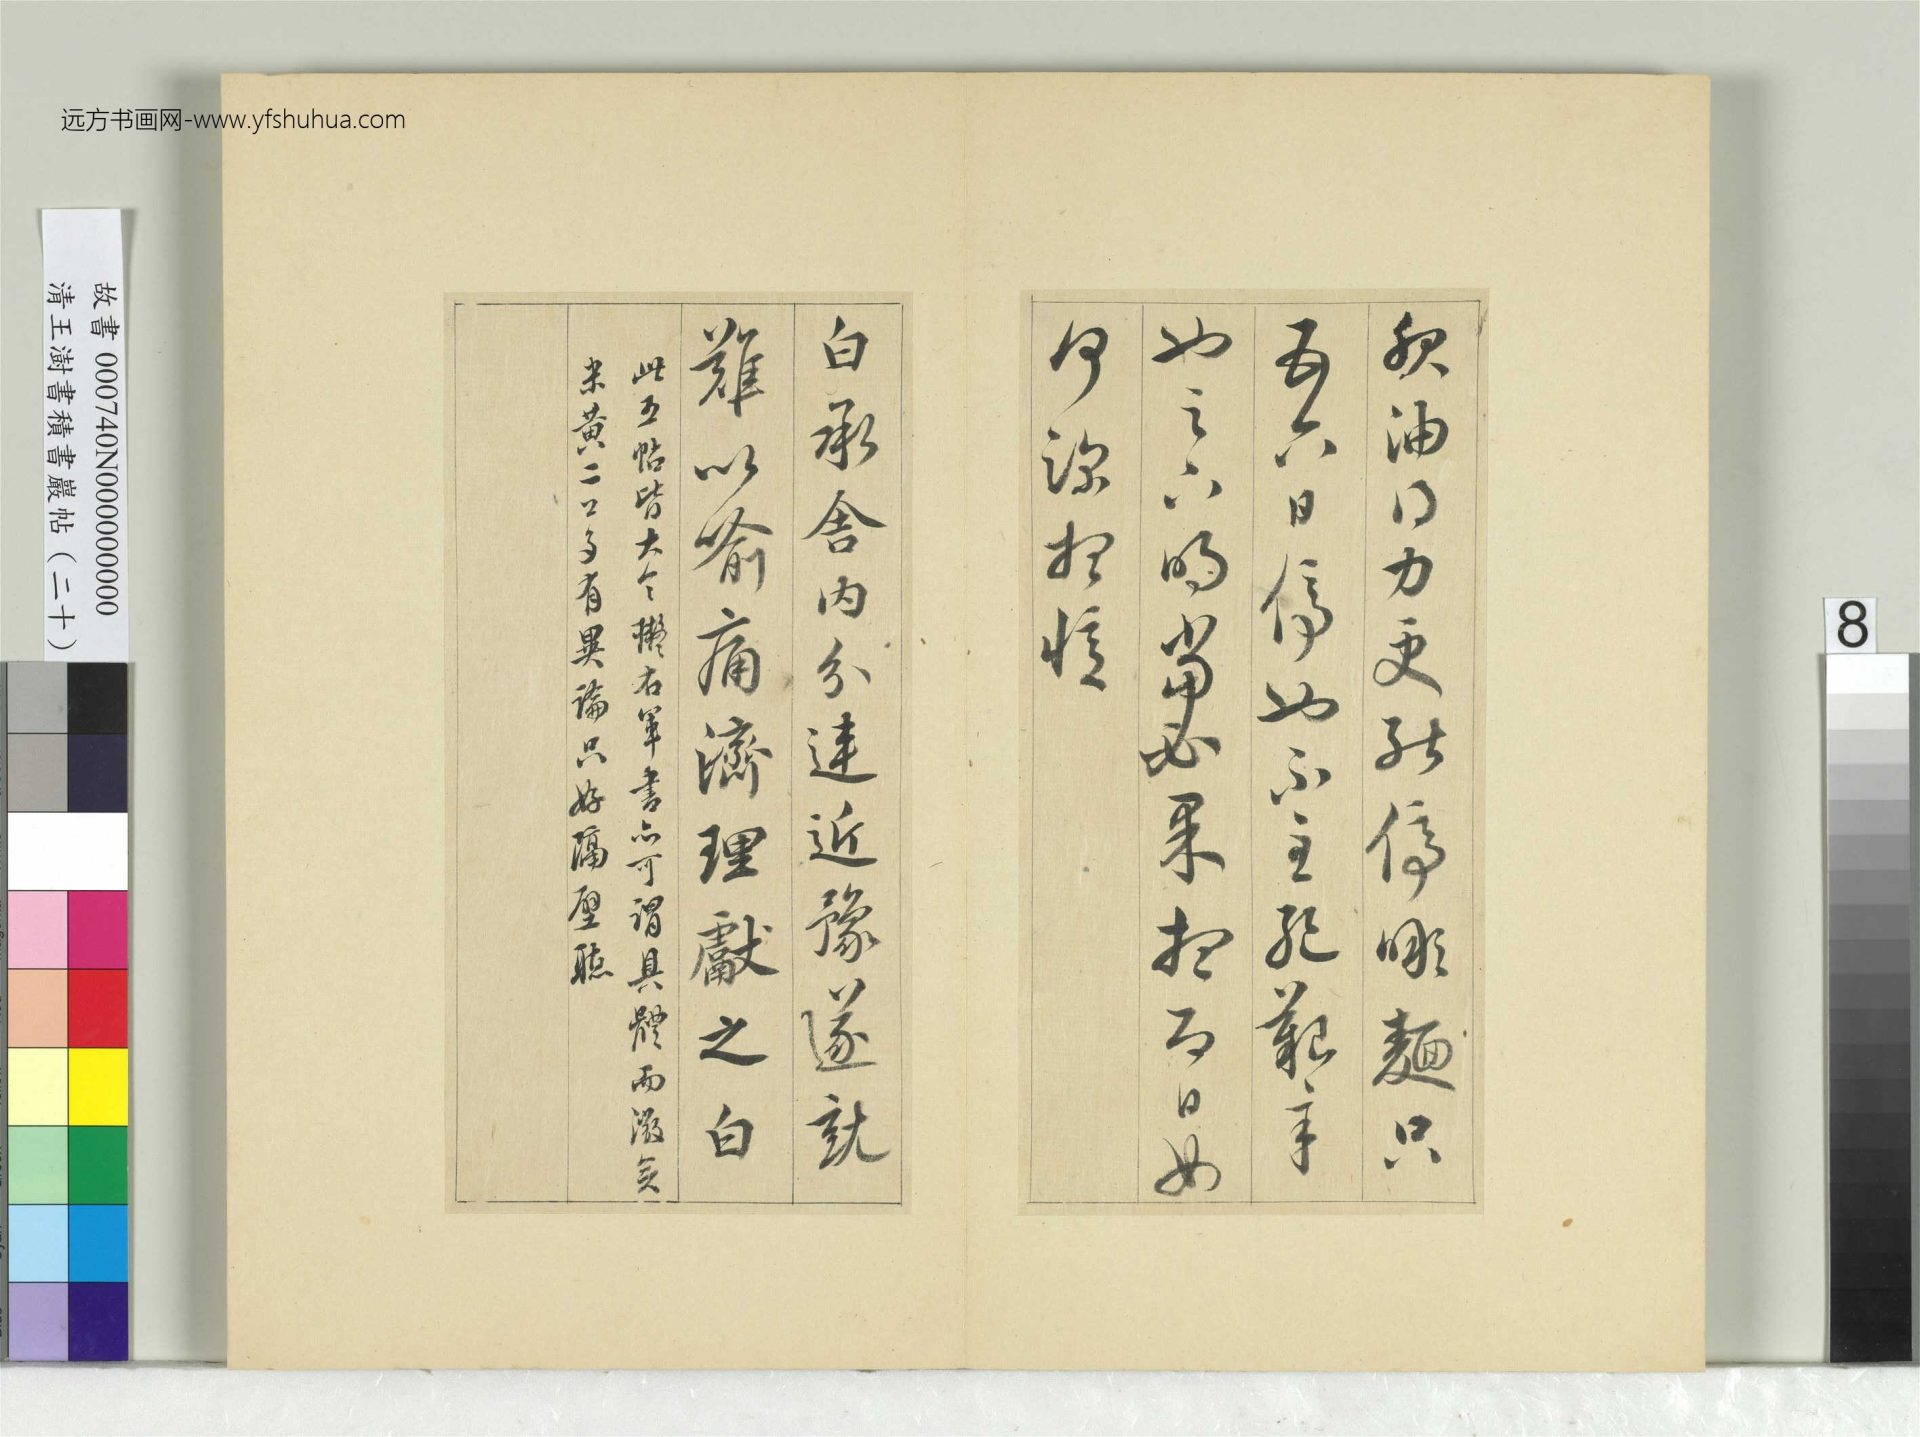 远方书画网-www.yfshuhua.com
故書 000740N000000000
清王澍書積書巖帖(二十)
8
服油得力更能停啖麵只
五六日停也不至絕艱辛
也足下明當必果想即日如
何深想憶
白承舍內分違近豫遂就
難以喻痛濟理獻之白
此五帖皆大令擬右軍書亦可謂具體而微矣
米黃二公多有異論只好隔壁聽